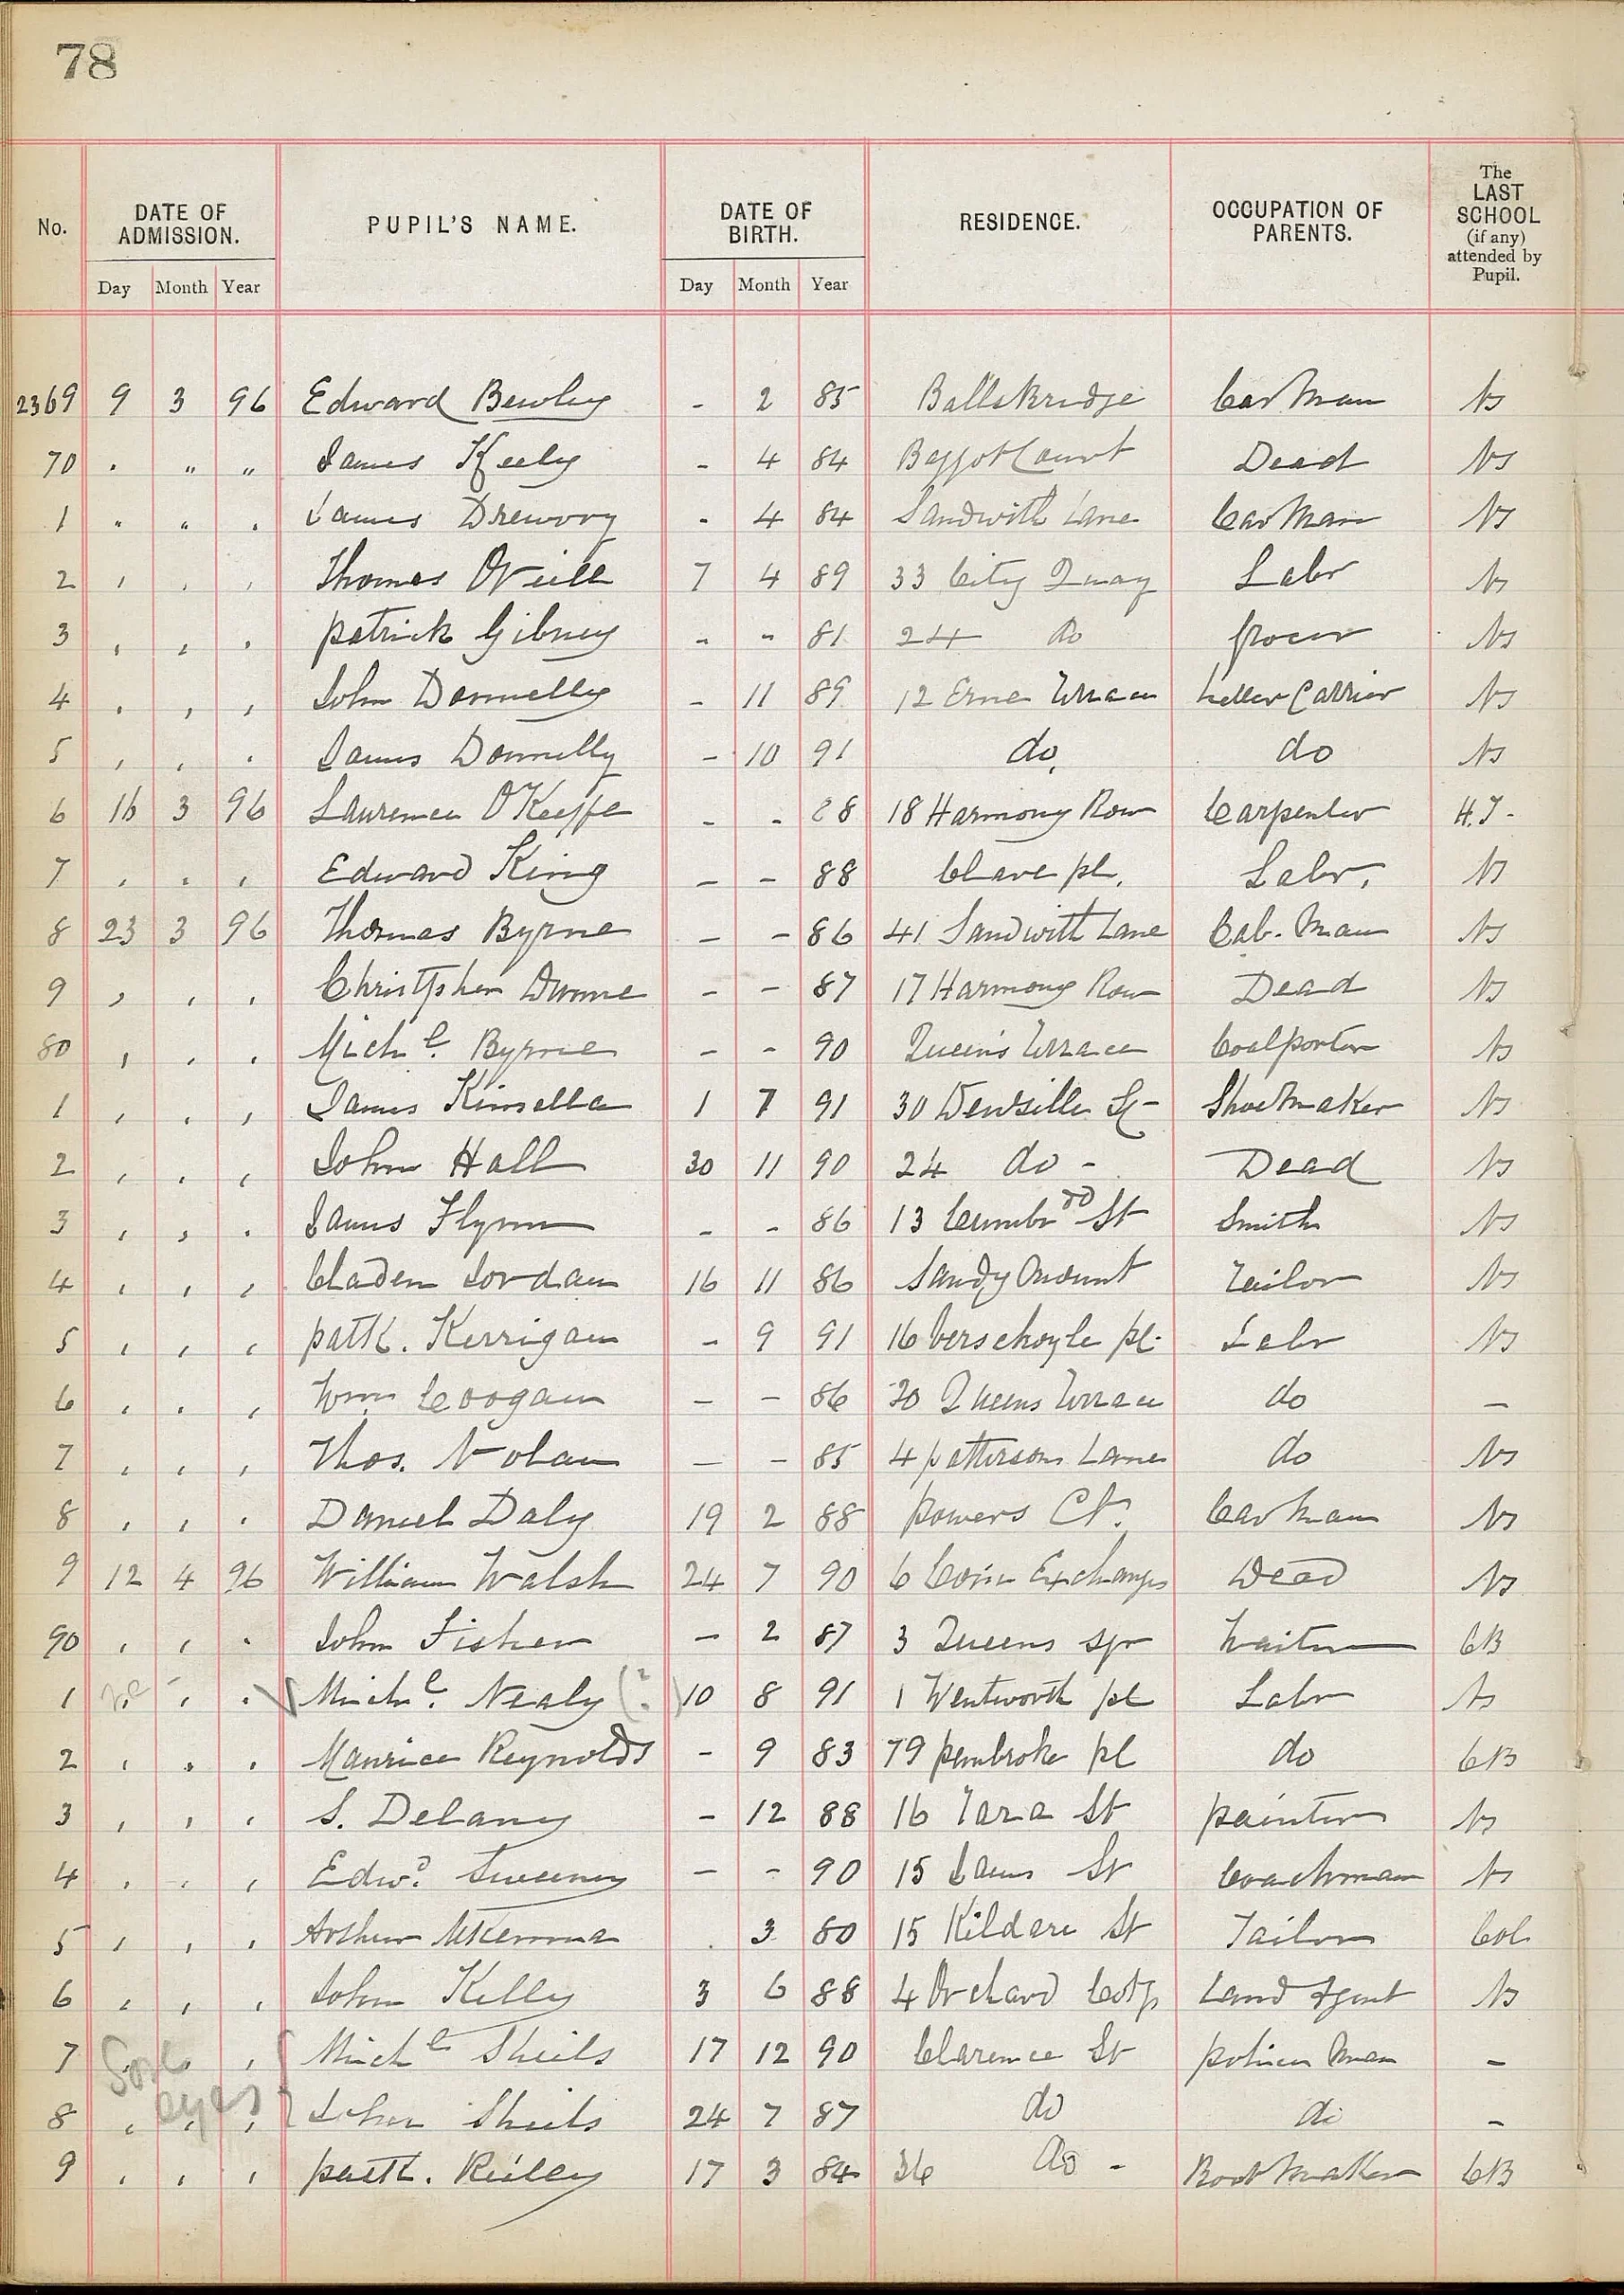 78
No. DATE OF ADMISSION. PUPIL'S NAME. DATE OF BIRTH. RESIDENCE. OCCUPATION OF PARENTS. The LAST SCHOOL (if any) attended by Pupil.
Day Month Year Day Month Year
2369 9 3 96 Edward Bewley - 2 85 Ballsbridge Carman NS
70 . " " James Keely - 4 84 Baggot Court Dead NS
1 " " . James Drewery - 4 84 Sandwith Lane Carman NS
2 , , , Thomas ONeill 7 4 89 33 City Quay Labr NS
3 , , . Patrick Gibney - - 81 24 do Grocer NS
4 . , , John Donnelly - 11 89 12 Erne Terrace Letter Carrier NS
5 , , . James Donnelly - 10 91 do. do NS
6 16 3 96 Laurence O'Keeffe - - 88 18 Harmony Row Carpenter H.J.
7 , , , Edward King - - 88 Clare pl. Labr. NS
8 23 3 96 Thomas Byrne - - 86 41 Sandwith Lane Cab-man NS
9 , , , Christpher Dunne - - 87 17 Harmony Row Dead NS
80 , , . Michl. Byrne - - 90 Queen's Terrace Coalporter NS
1 , , , James Kinsella 1 7 91 30 Denzille St- Shoemaker NS
2 , , , John Hall 30 11 90 24 do - Dead NS
3 , , . James Flynn - - 86 13 Cumbrd St Smith NS
4 , , , Jordan 16 11 86 Sandymount Tailor NS
5 , , , Patk. Kerrigan - 9 91 16 Verschoyle pl. Labr NS
6 , . , Wm Coogan - - 86 20 Queens Terrace do -
7 , , , Thos. Nolan - - 85 4 Pattersons Lane do NS
8 , , . Daniel Daly 19 2 88 Powers Ct. Carman NS
9 12 4 96 William Walsh 24 7 90 6 Corn Exchange Dead NS
90 , , . John Fisher - 2 87 3 Queens sqr Waiter CB
1 , , . Michl. Nealy (?) 10 8 91 1 Wentworth pl Labr NS
2 , , . Maurice Reynolds - 9 83 79 Pembroke pl do CB
3 , , , S. Delany - 12 88 16 Tara St Painter NS
4 , , , Edwd. Sweeney - - 90 15 James St Coachman NS
5 , , , Arthur McKenna . 3 80 15 Kildare St Tailor Col
6 , , , John Kelly 3 6 88 4 Orchard Cotgs Land Agent NS
7 , , , Michl Sheils 17 12 90 Clarence St Policeman -
Sore eyes
8 , , , John Sheils 24 7 87 do do -
9 , , , Patk. Reilly 17 3 84 36 do - Bootmaker CB